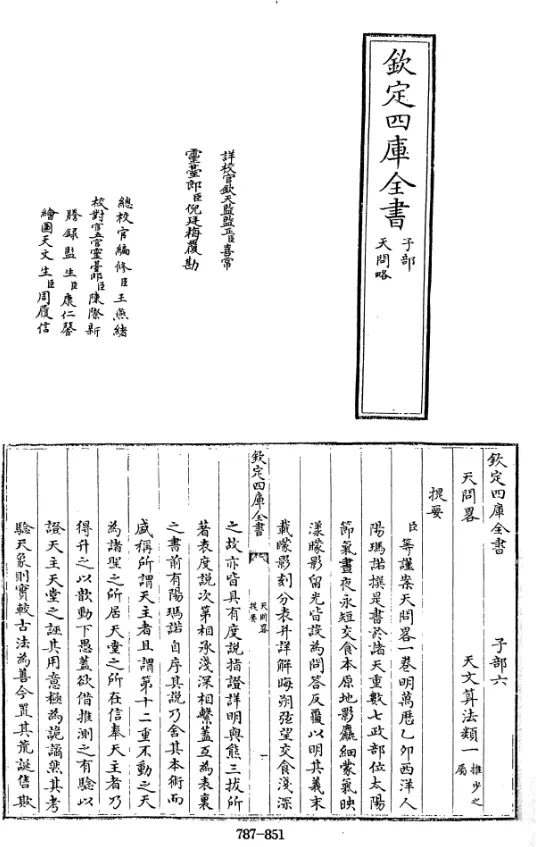 欽定四庫全書
子部
天問略
詳校官欽天監監正臣喜常
靈臺郎臣倪廷梅覆勘
總校官編修臣王燕緒
校對官五官靈臺郎臣陳際新
謄錄監生臣康仁馨
繪圖天文生臣周履信
欽定四庫全書 子部六
天問畧 天文算法類一推步之屬
提要
臣等謹案天問畧一卷明萬厯乙卯西洋人
陽瑪諾撰是書於諸天重數七政部位太陽
節氣晝夜永短交食本原地影麤細蒙氣映
漾曚影留光皆設為問答反覆以明其義末
載曚影刻分表并詳解晦朔弦望交食淺深
欽定四庫全書
天問畧
提要
一
之故亦皆具有度說指證詳明與熊三拔所
著表度說次第相承淺深相繫蓋互為表裏
之書前有陽瑪諾自序其說乃舍其本術而
盛稱所謂天主者且謂第十二重不動之天
為諸聖之所居天堂之所在信奉天主者乃
得升之以歆動下愚蓋欲借推測之有驗以
證天主天堂之誣其用意極為詭譎然其考
驗天象則實較古法為善今置其荒誕售欺
787-851